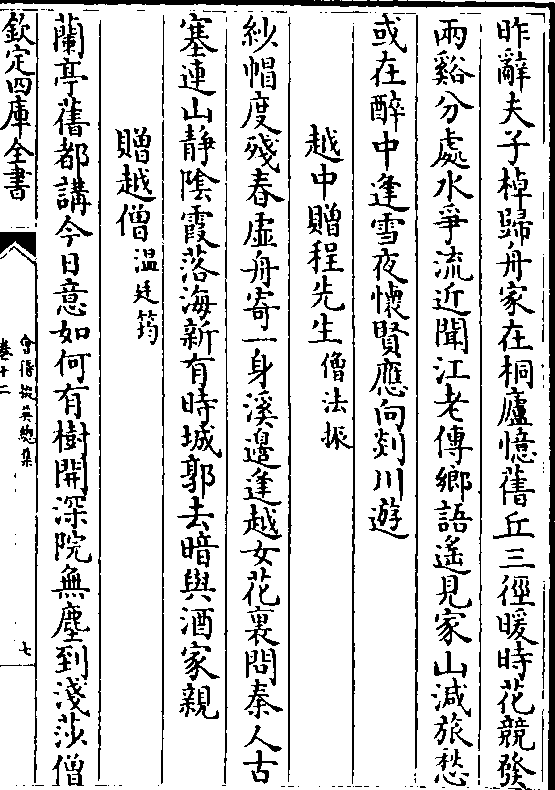 昨辭夫子棹歸舟家在桐廬憶舊丘三徑暖時花競發
兩谿分處水爭流近聞江老傳鄉語遙見家山減旅愁
或在醉中逢雪夜懷賢應向剡川遊
越中贈程先生 僧法振
紗帽度殘春虛舟寄一身溪邉逢越女花裏問秦人古
塞連山靜陰霞落海新有時城郭去暗與酒家親
贈越僧 温廷筠
蘭亭舊都講今日意如何有樹開深院無塵到淺莎僧
欽定四庫全書
會稽掇英總集
卷十二
七